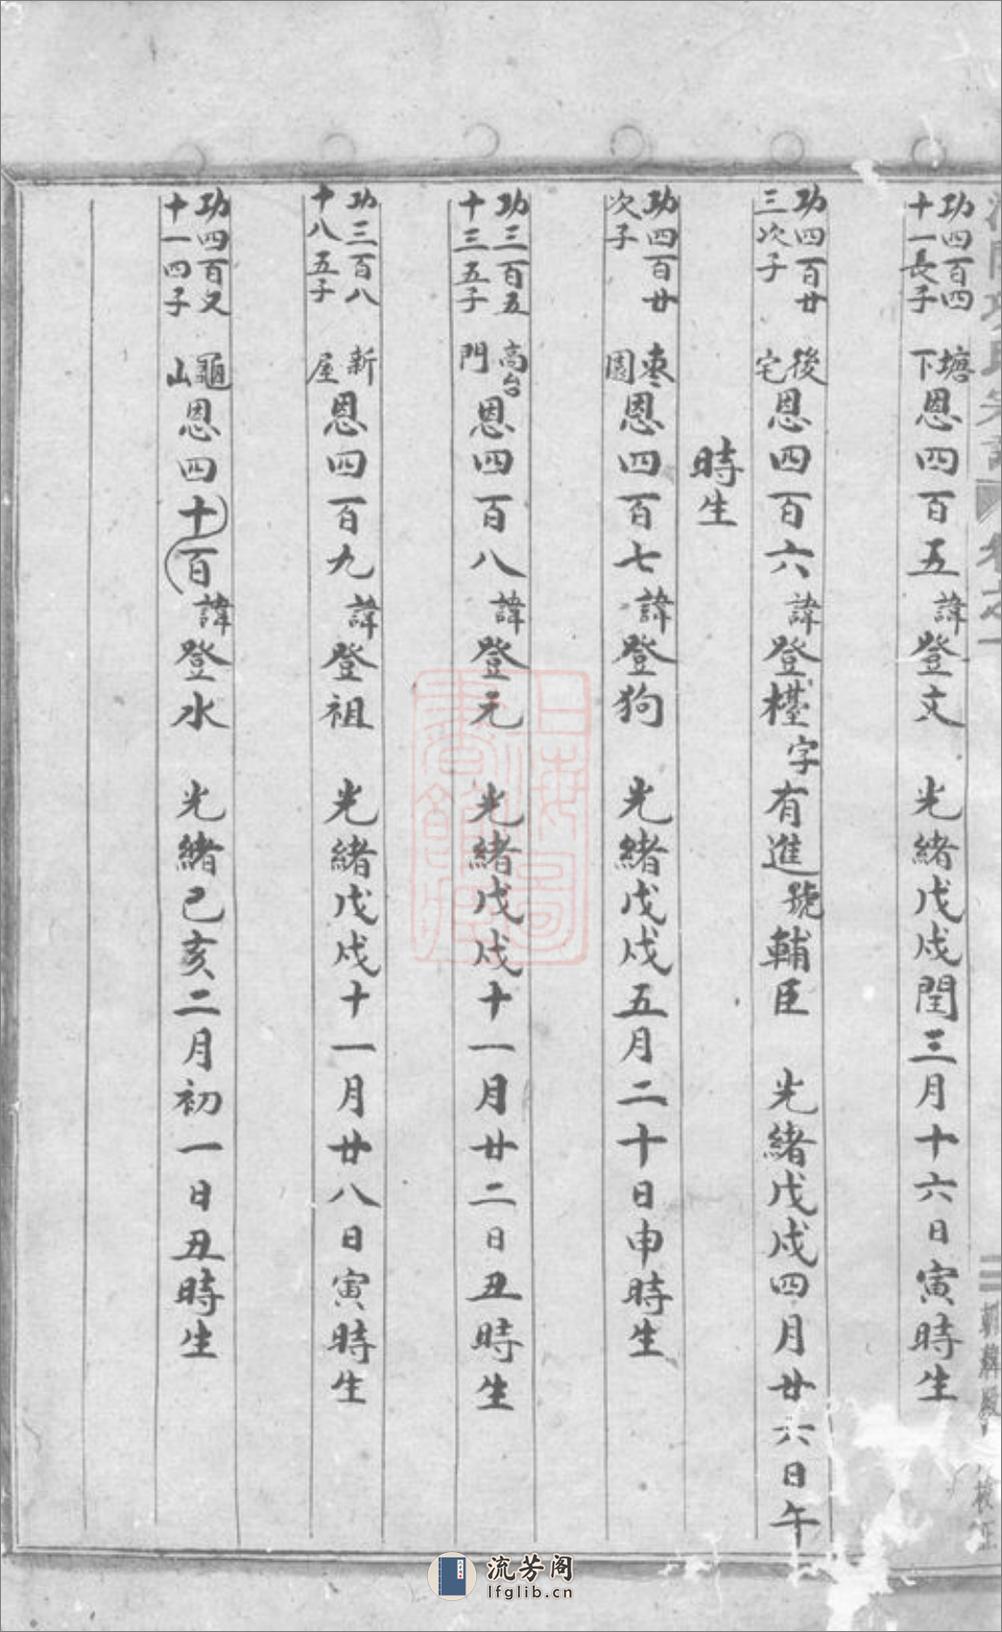 功四百四十一長子 塘下 恩四百五 諱登文 光緒戊戌閏三月十六日寅時生
功四百廿三次子 後宅 恩四百六 諱登檯 字有進 號輔臣 光緒戊戌四月廿六日午
時生
功四百廿次子 棗園 恩四百七 諱登狗 光緒戊戌五月二十日申時生
功三百五十三五子 高台門 恩四百八 諱登元 光緒戊戌十一月廿二日丑時生
功三百八十八五子 新屋 恩四百九 諱登祖 光緒戊戌十一月廿八日寅時生
功四百又十一四子 龜山 恩四十百 諱登水 光緒己亥二月初一日丑時生
流芳阁
lfglib.cn